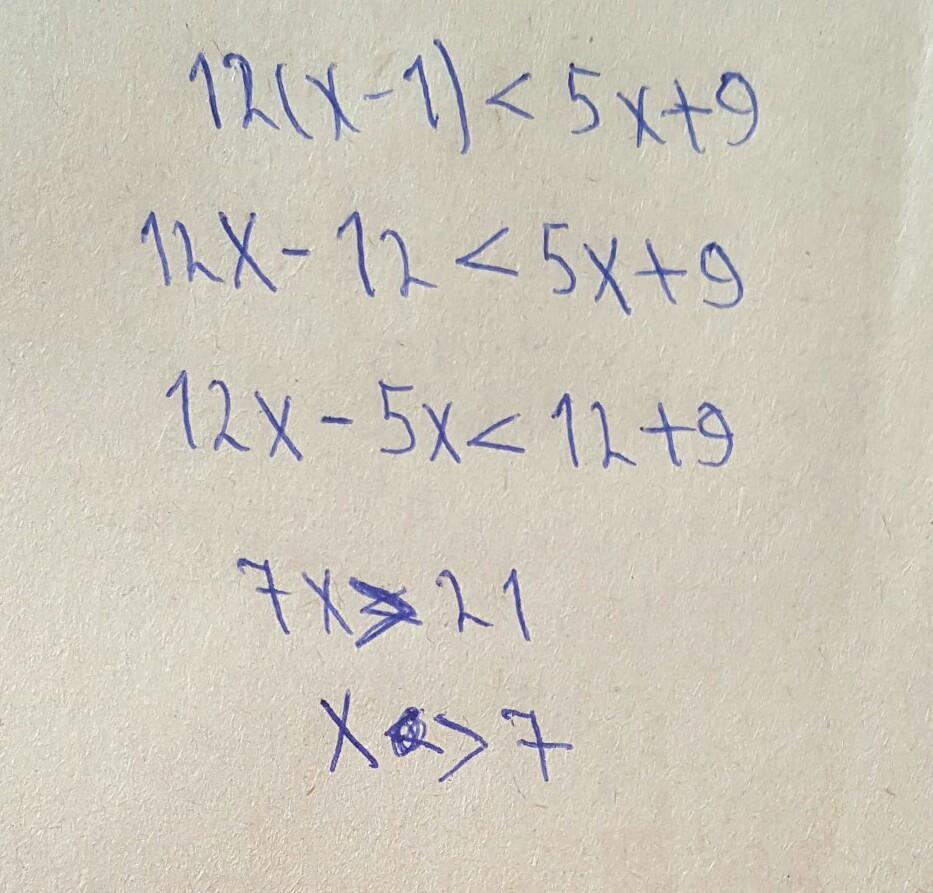 12(x-1) < 5x+9
12x - 12 < 5x+9
12x - 5x < 12+9
7x > 21
x > 7